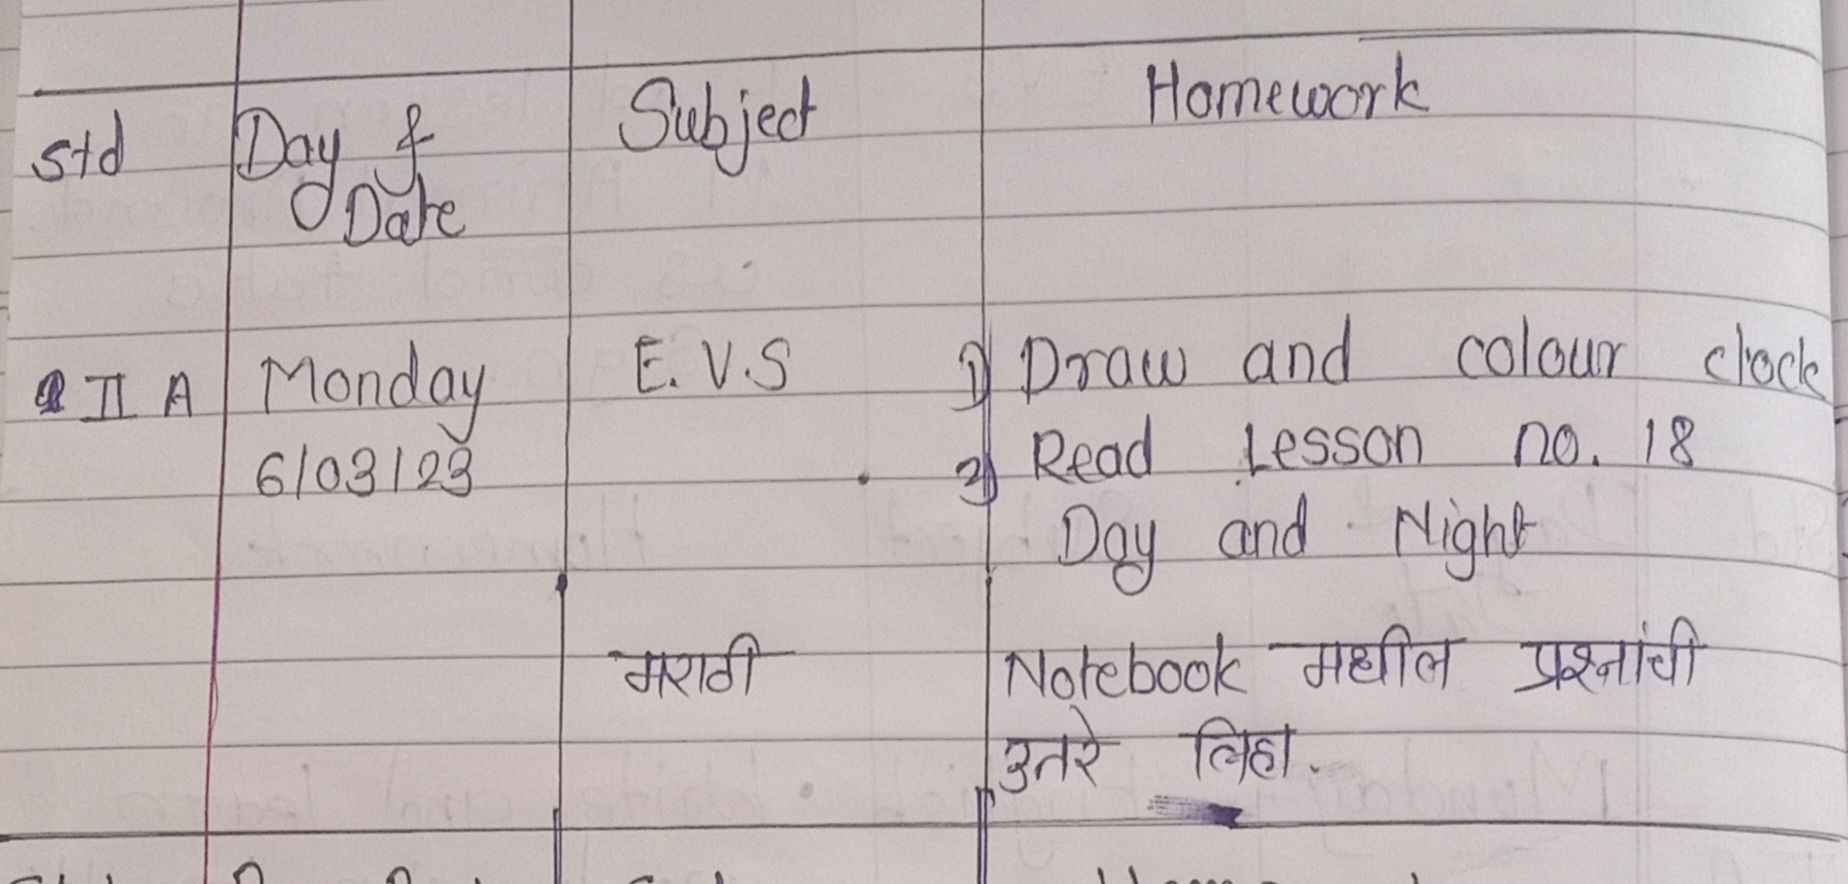 Std Day & Subject Homework
Date
II A Monday E.V.S 1) Draw and colour clock
6/03/23 2) Read Lesson no. 18
Day and Night
मराठी Notebook मधील प्रश्नांची
उतरे लिहा.